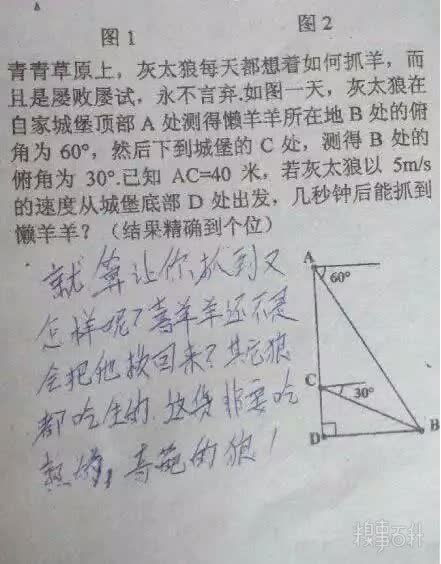 图 1 图 2
青青草原上，灰太狼每天都想着如何抓羊，而
且是屡败屡试，永不言弃.如图一天，灰太狼在
自家城堡顶部 A 处测得懒羊羊所在地 B 处的俯
角为 60°，然后下到城堡的 C 处，测得 B 处的
俯角为 30°.已知 AC=40 米，若灰太狼以 5m/s
的速度从城堡底部 D 处出发，几秒钟后能抓到
懒羊羊？（结果精确到个位）
就算让你抓到又
怎样呢？喜羊羊还不是
会把他救回来？其它狼
都吃生的，这货非要吃
熟的，奇葩的狼！
A
60°
C
30°
D
B
糗事百科